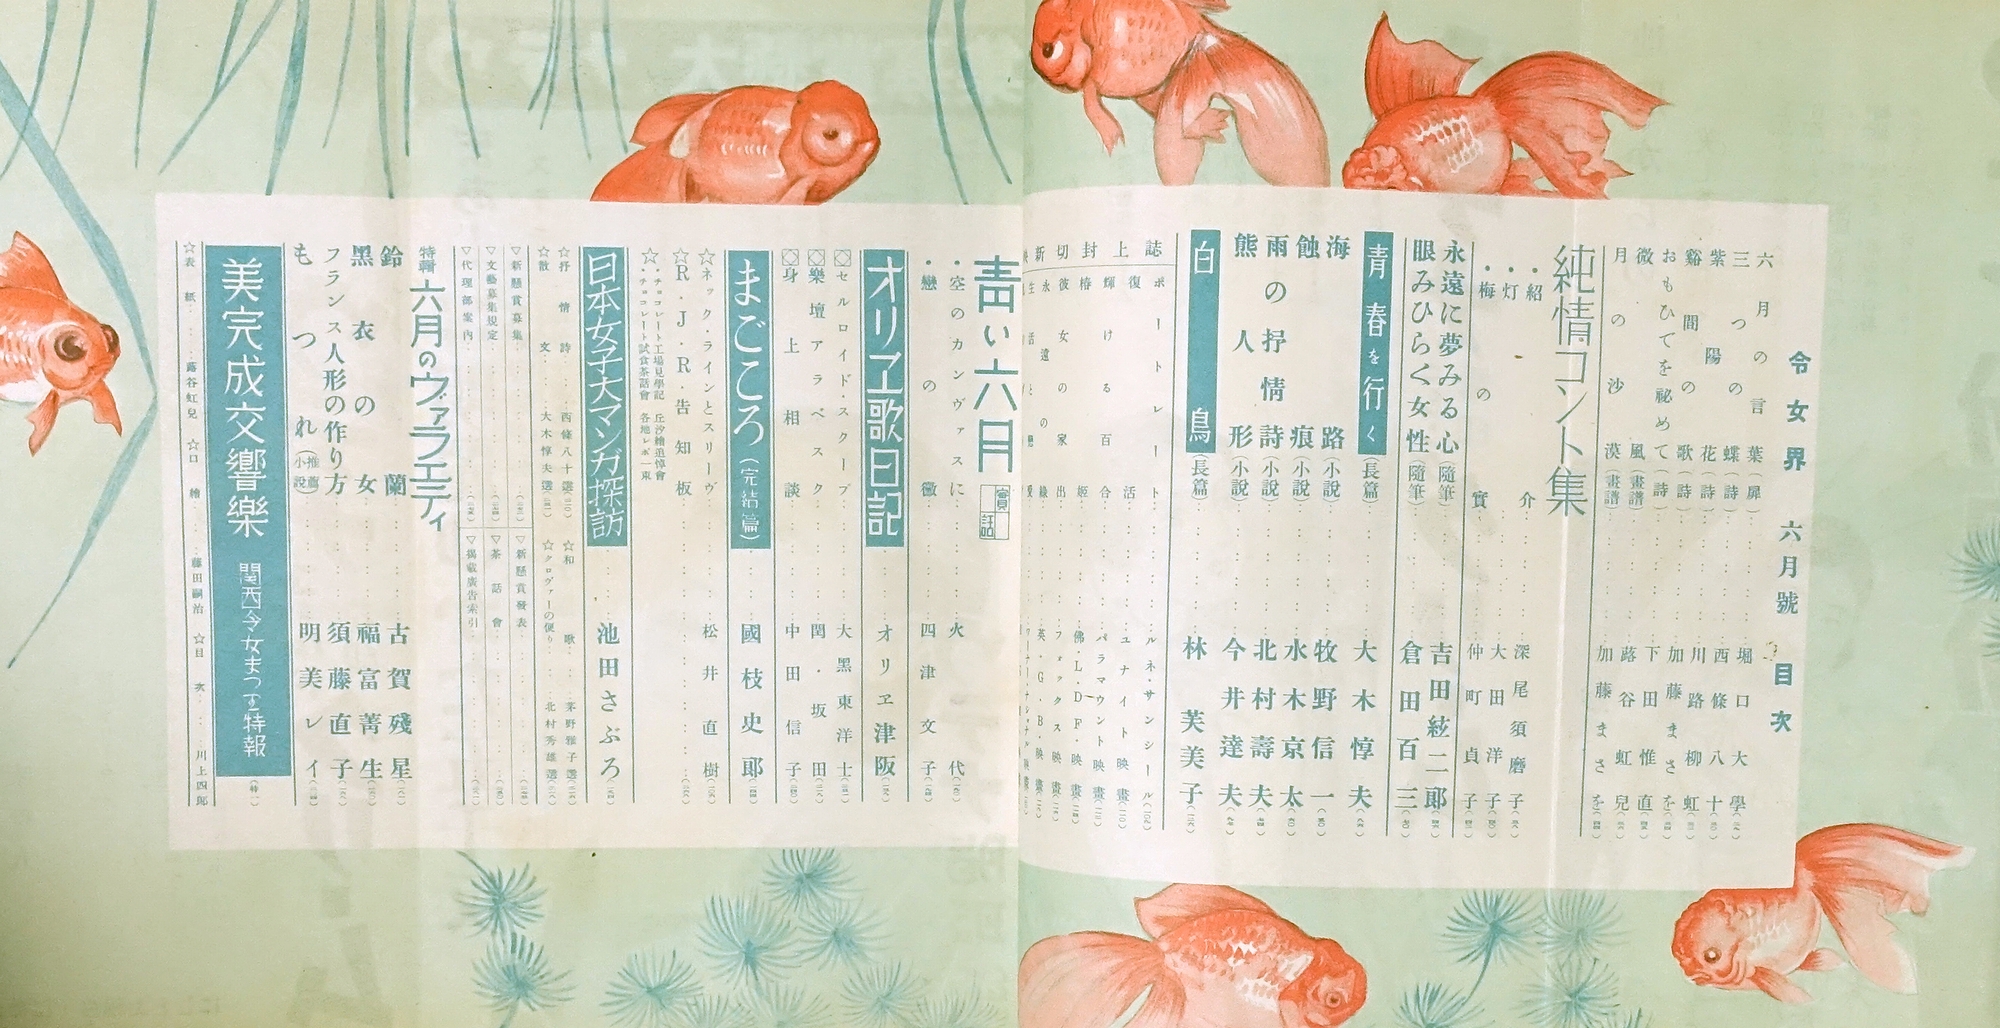 令女界 六月號 目次
六月の言葉(扉)……堀口大學
三つの蝶(詩)……西條八十
紫陽花(詩)……川路柳虹
谿間の歌(詩)……加藤まさを
おもひでを祕めて(詩)……下田惟直
微風(畫譜)……蕗谷虹兒
月の沙漠(畫譜)……加藤まさを
純情コント集
・紹介……深尾須磨子
・灯……大田洋子
・梅の實……仲町貞子
永遠に夢みる心(隨筆)……吉田絃二郎
眼みひらく女性(隨筆)……倉田百三
青春を行く(長篇)……大木惇夫
海路(小說)……牧野信一
蝕痕(小說)……水木京太
雨の抒情詩(小說)……北村壽夫
熊人形(小說)……今井達夫
白鳥(長篇)……林芙美子
誌上封切新映
ポートレート……ルネ・サンシール
復活……ユナイト映畫
輝ける百合……パラマウント映畫
椿姬……佛・L・D・F・映畫
彼女の家出……フォックス映畫
永遠の綠……英・G・B・映畫
青い六月 實話
・空のカンヴァスに……火代
・戀の黴……四津文子
オリヱ歌日記……オリヱ津阪
セルロイド・スクープ……大黑東洋士
樂壇アラベスク……閏・坂田
身上相談……中田信子
まごころ(完結篇)……國枝史郎
☆ネック・ラインとスリーヴ……松井直樹
☆R・J・R・告知板
☆・チョコレート工場見學記 丘沙繪追悼會
・チョコレート試食茶話會 各地レポ一束
日本女子大マンガ探訪……池田さぶろ
☆抒情詩……西條八十選
☆和歌……茅野雅子選
☆散文……大木惇夫選
☆クロヴァーの便り……北村秀雄選
▽新懸賞募集
▽新懸賞發表
▽文藝募集規定
▽茶話會
▽代理部案內
▽揭載廣告索引
特輯 六月のヴァラエティ
鈴蘭……古賀殘星
黑衣の女……福富菁生
フランス人形の作り方……須藤直子
もつれ(推薦小說)……明美レイ
美完成交響樂 関西令女まつり特報
☆表紙……蕗谷虹兒 ☆口繪……藤田嗣治 ☆目次……川上四郎